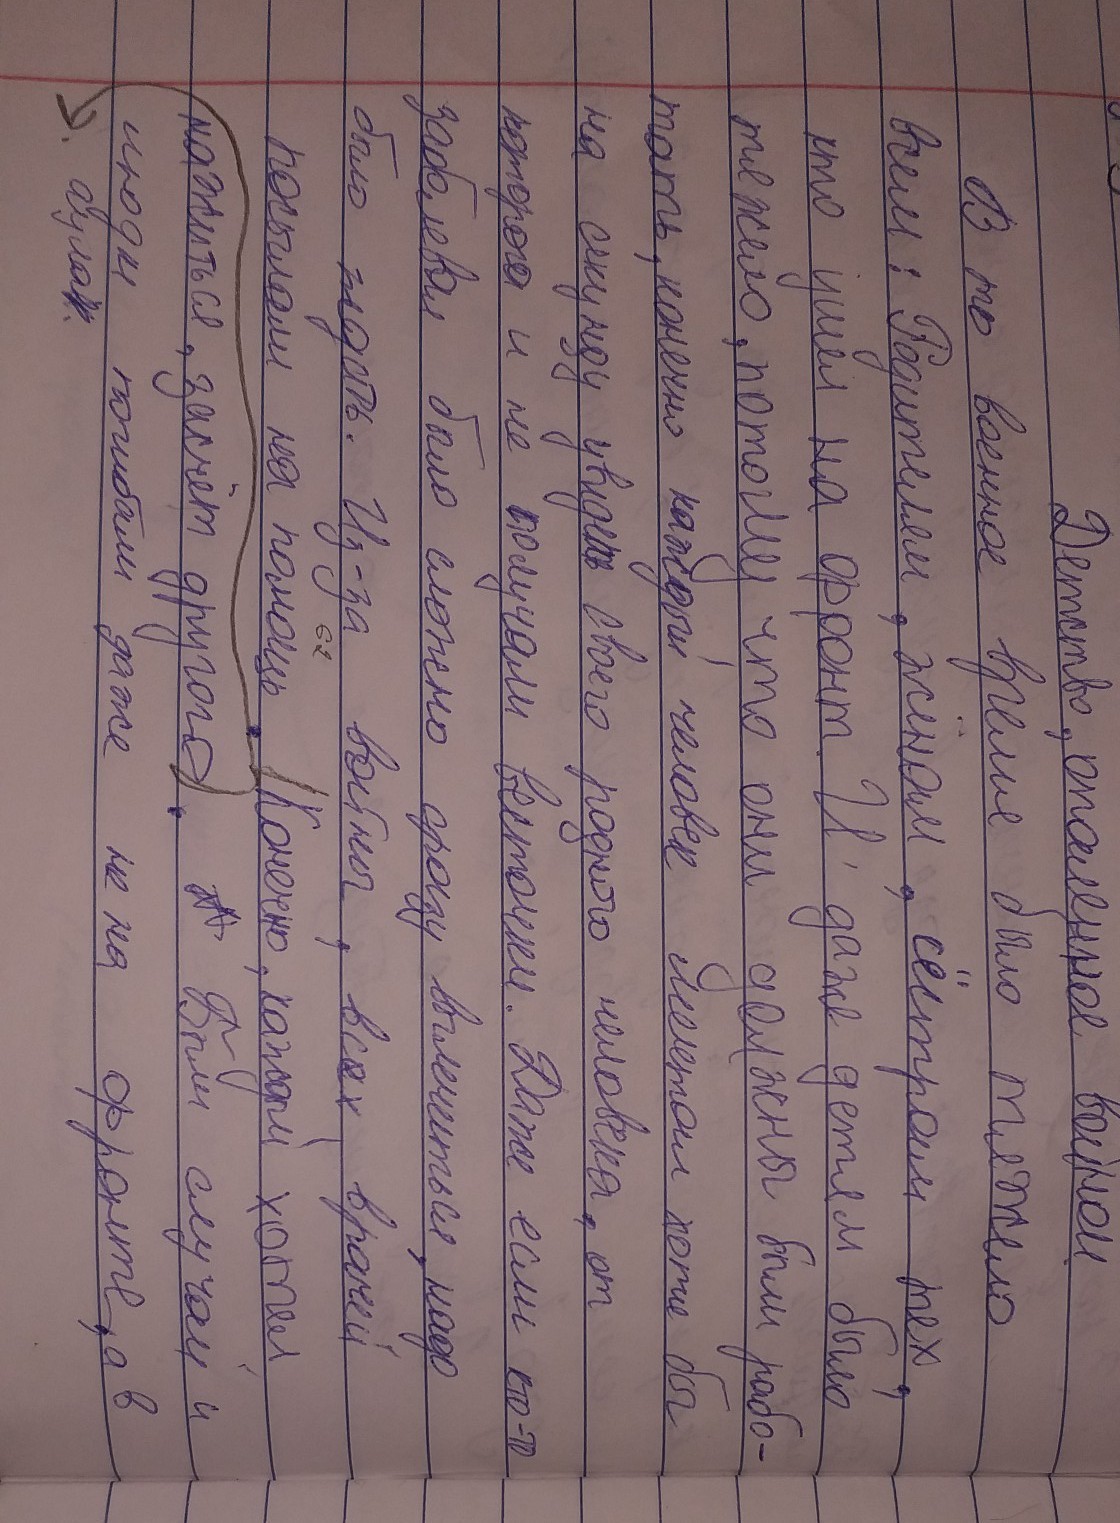 Детство, опаленное войной
В то военное время было тяжело
всем: Родителям, жёнам, сёстрам тех,
кто ушёл на фронт. И даже детям было
тяжело, потому что они должны были рабо-
тать, конечно каждый человек мечтал хотя бы
на секунду увидеть своего родного человека, от
которого и не получали весточки. Даже если кто-то
заболевал было сложно сразу вылечиться, надо
было ждать. Из-за войны, всех врачей
посылали на помощь. Конечно, каждый хотел
нажиться, засчёт другого. Были случаи и
иногда погибали даже не на фронте, а в
тылах.